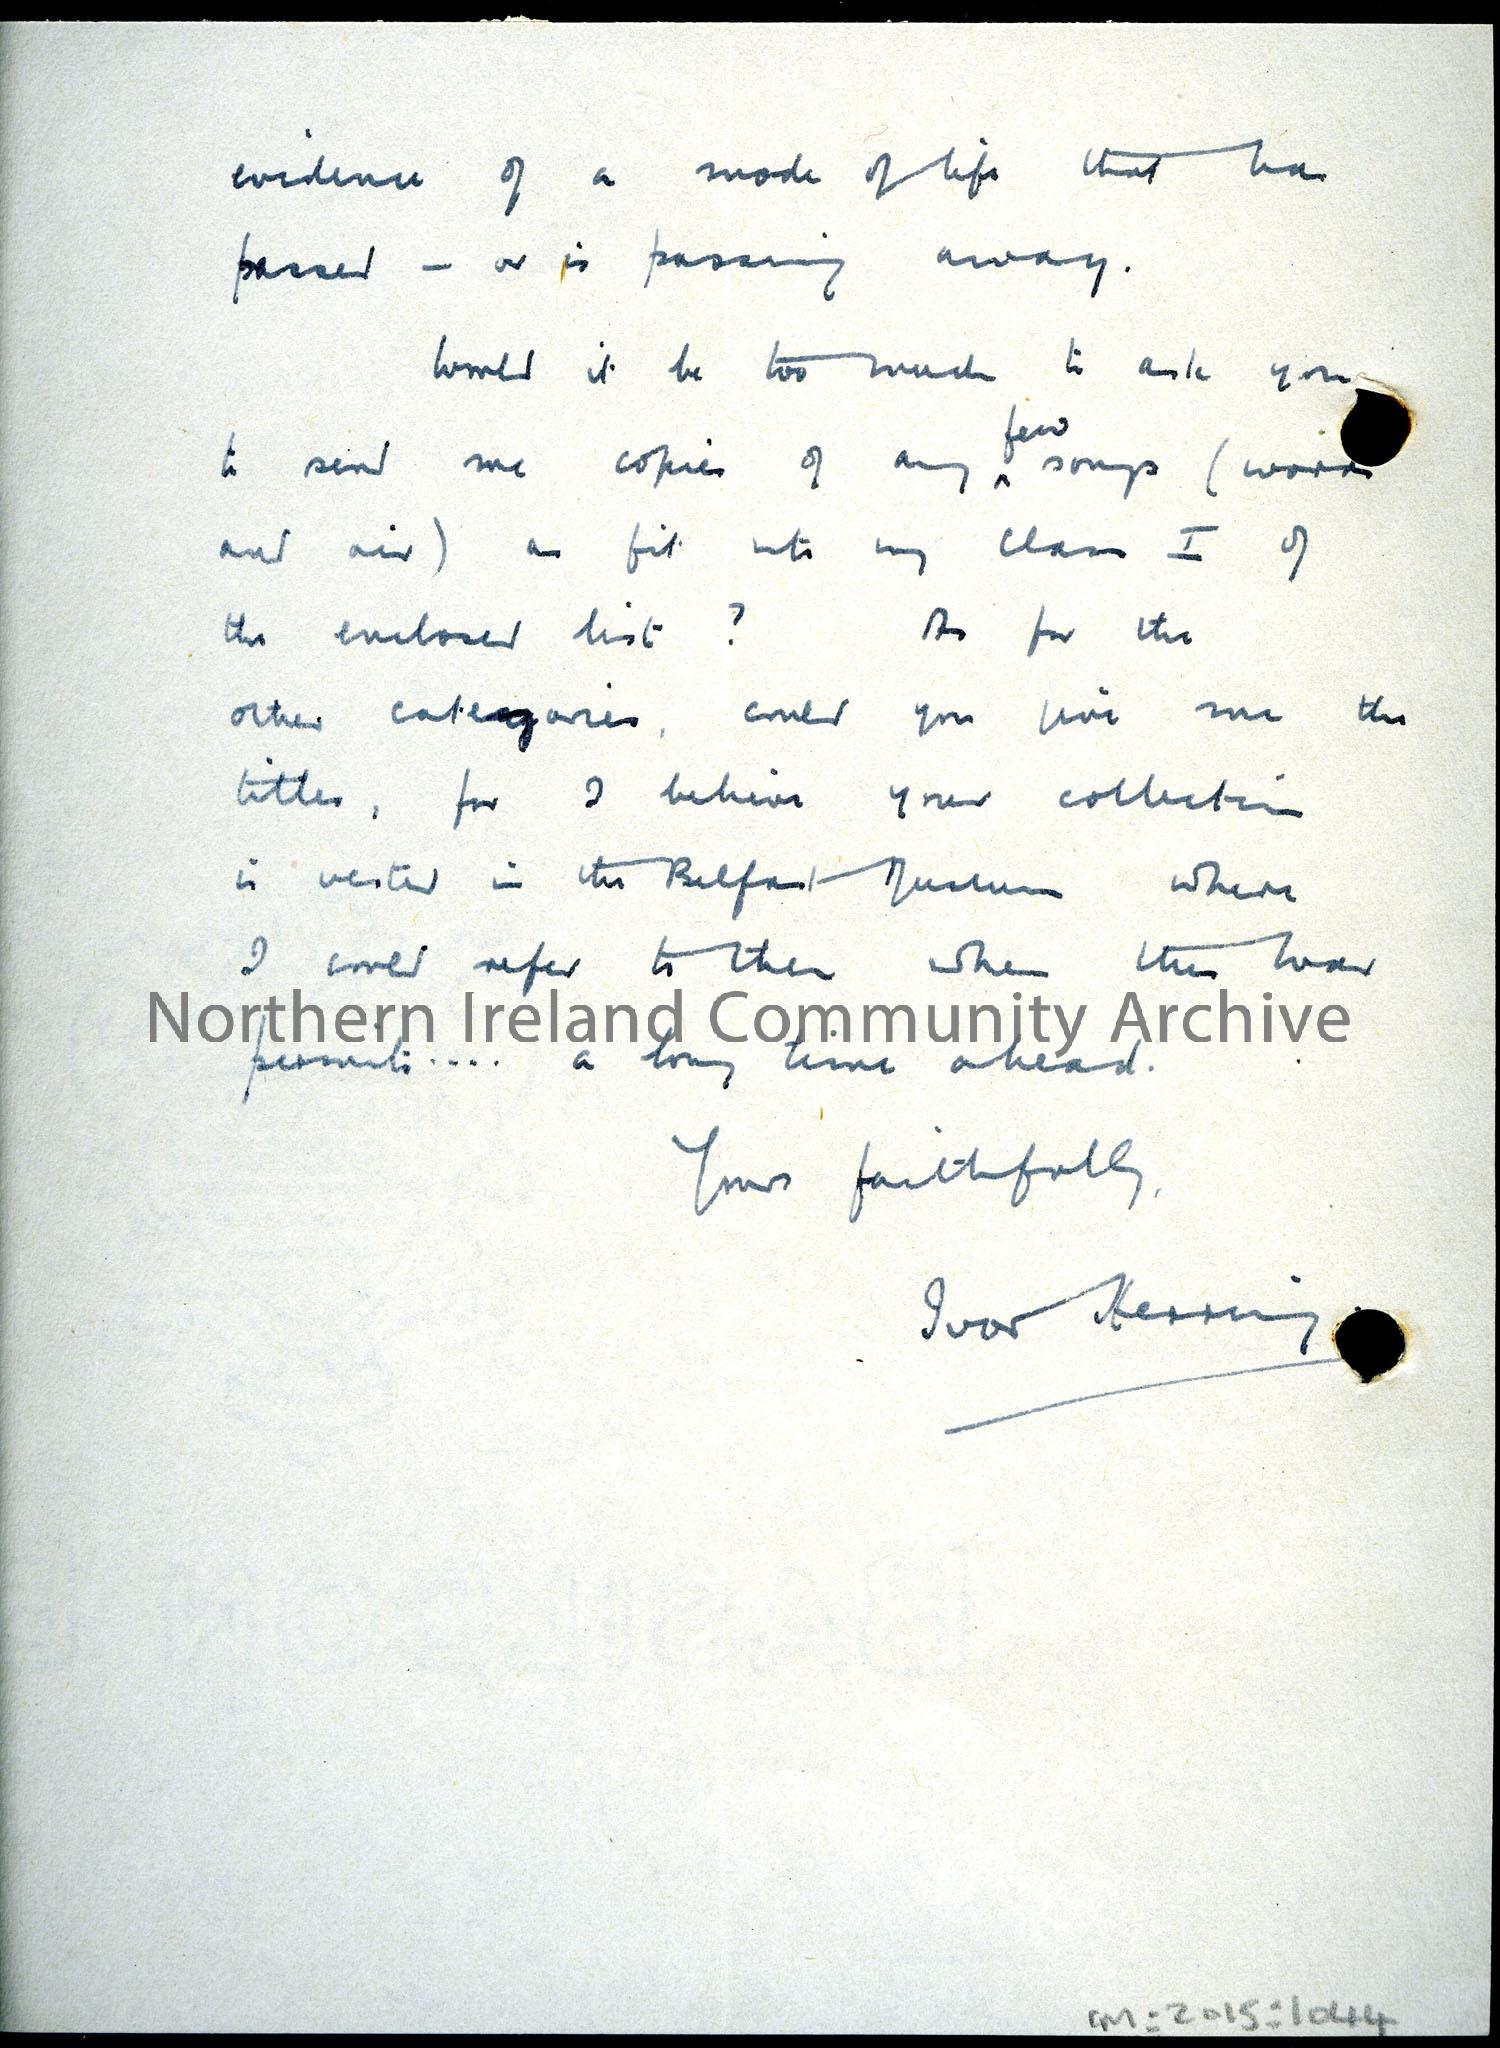 evidence of a mode of life that has
passed – or is passing away.
Would it be too much to ask you
to send me copies of any ^few songs (words
and air) as fit into my Class I of
the enclosed list? As for the
other categories, could you give me the
titles, for I believe your collection
is vested in the Belfast Museum where
I could refer to them when the war
permits.... a long time ahead.
Northern Ireland Community Archive
Yours faithfully,
Ivor Herring
CM:2015:1044